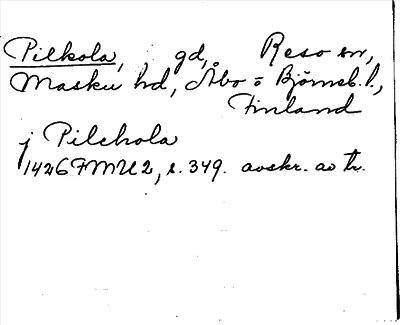 Pilkola, gd, Reso sn,
Masku hd, Åbo = Björneb. l.,
Finland
j Pilchola
1426 FMU 2, s. 349. avskr. av tr.